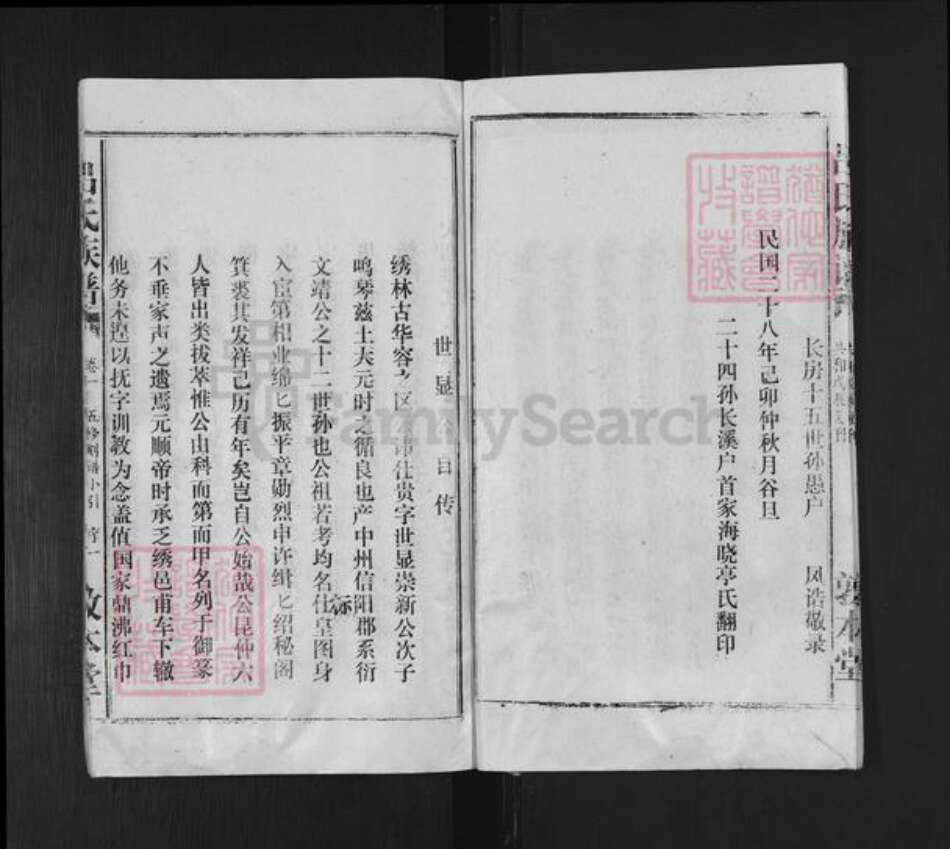 长房十五世孙愚户 风诰敬录
民国二十八年己卯仲秋月谷旦
二十四孙长溪户首家海晓亭氏翻印
世显公自传
绣林古华容之区公讳仕贵字世显崇新公次子
鸣琴兹土大元时之循良也产中州信阳郡系衍
文靖公之十二世孙也公祖若考均名仕皇图身
入宦第相业绵匕振平章勋烈申许缉匕绍秘阁
箕裘其发祥己历有年矣岂自公始哉公昆仲六
人皆出类拔萃惟公由科而第而甲名列于御篆
不垂家声之遗焉元顺帝时承乏绣邑甫车下辙
他务未遑以抚字训教为念盖值国家鼎沸红巾
吕氏族谱
卷一
五修刷谱小引
敦本堂
FamilySearch